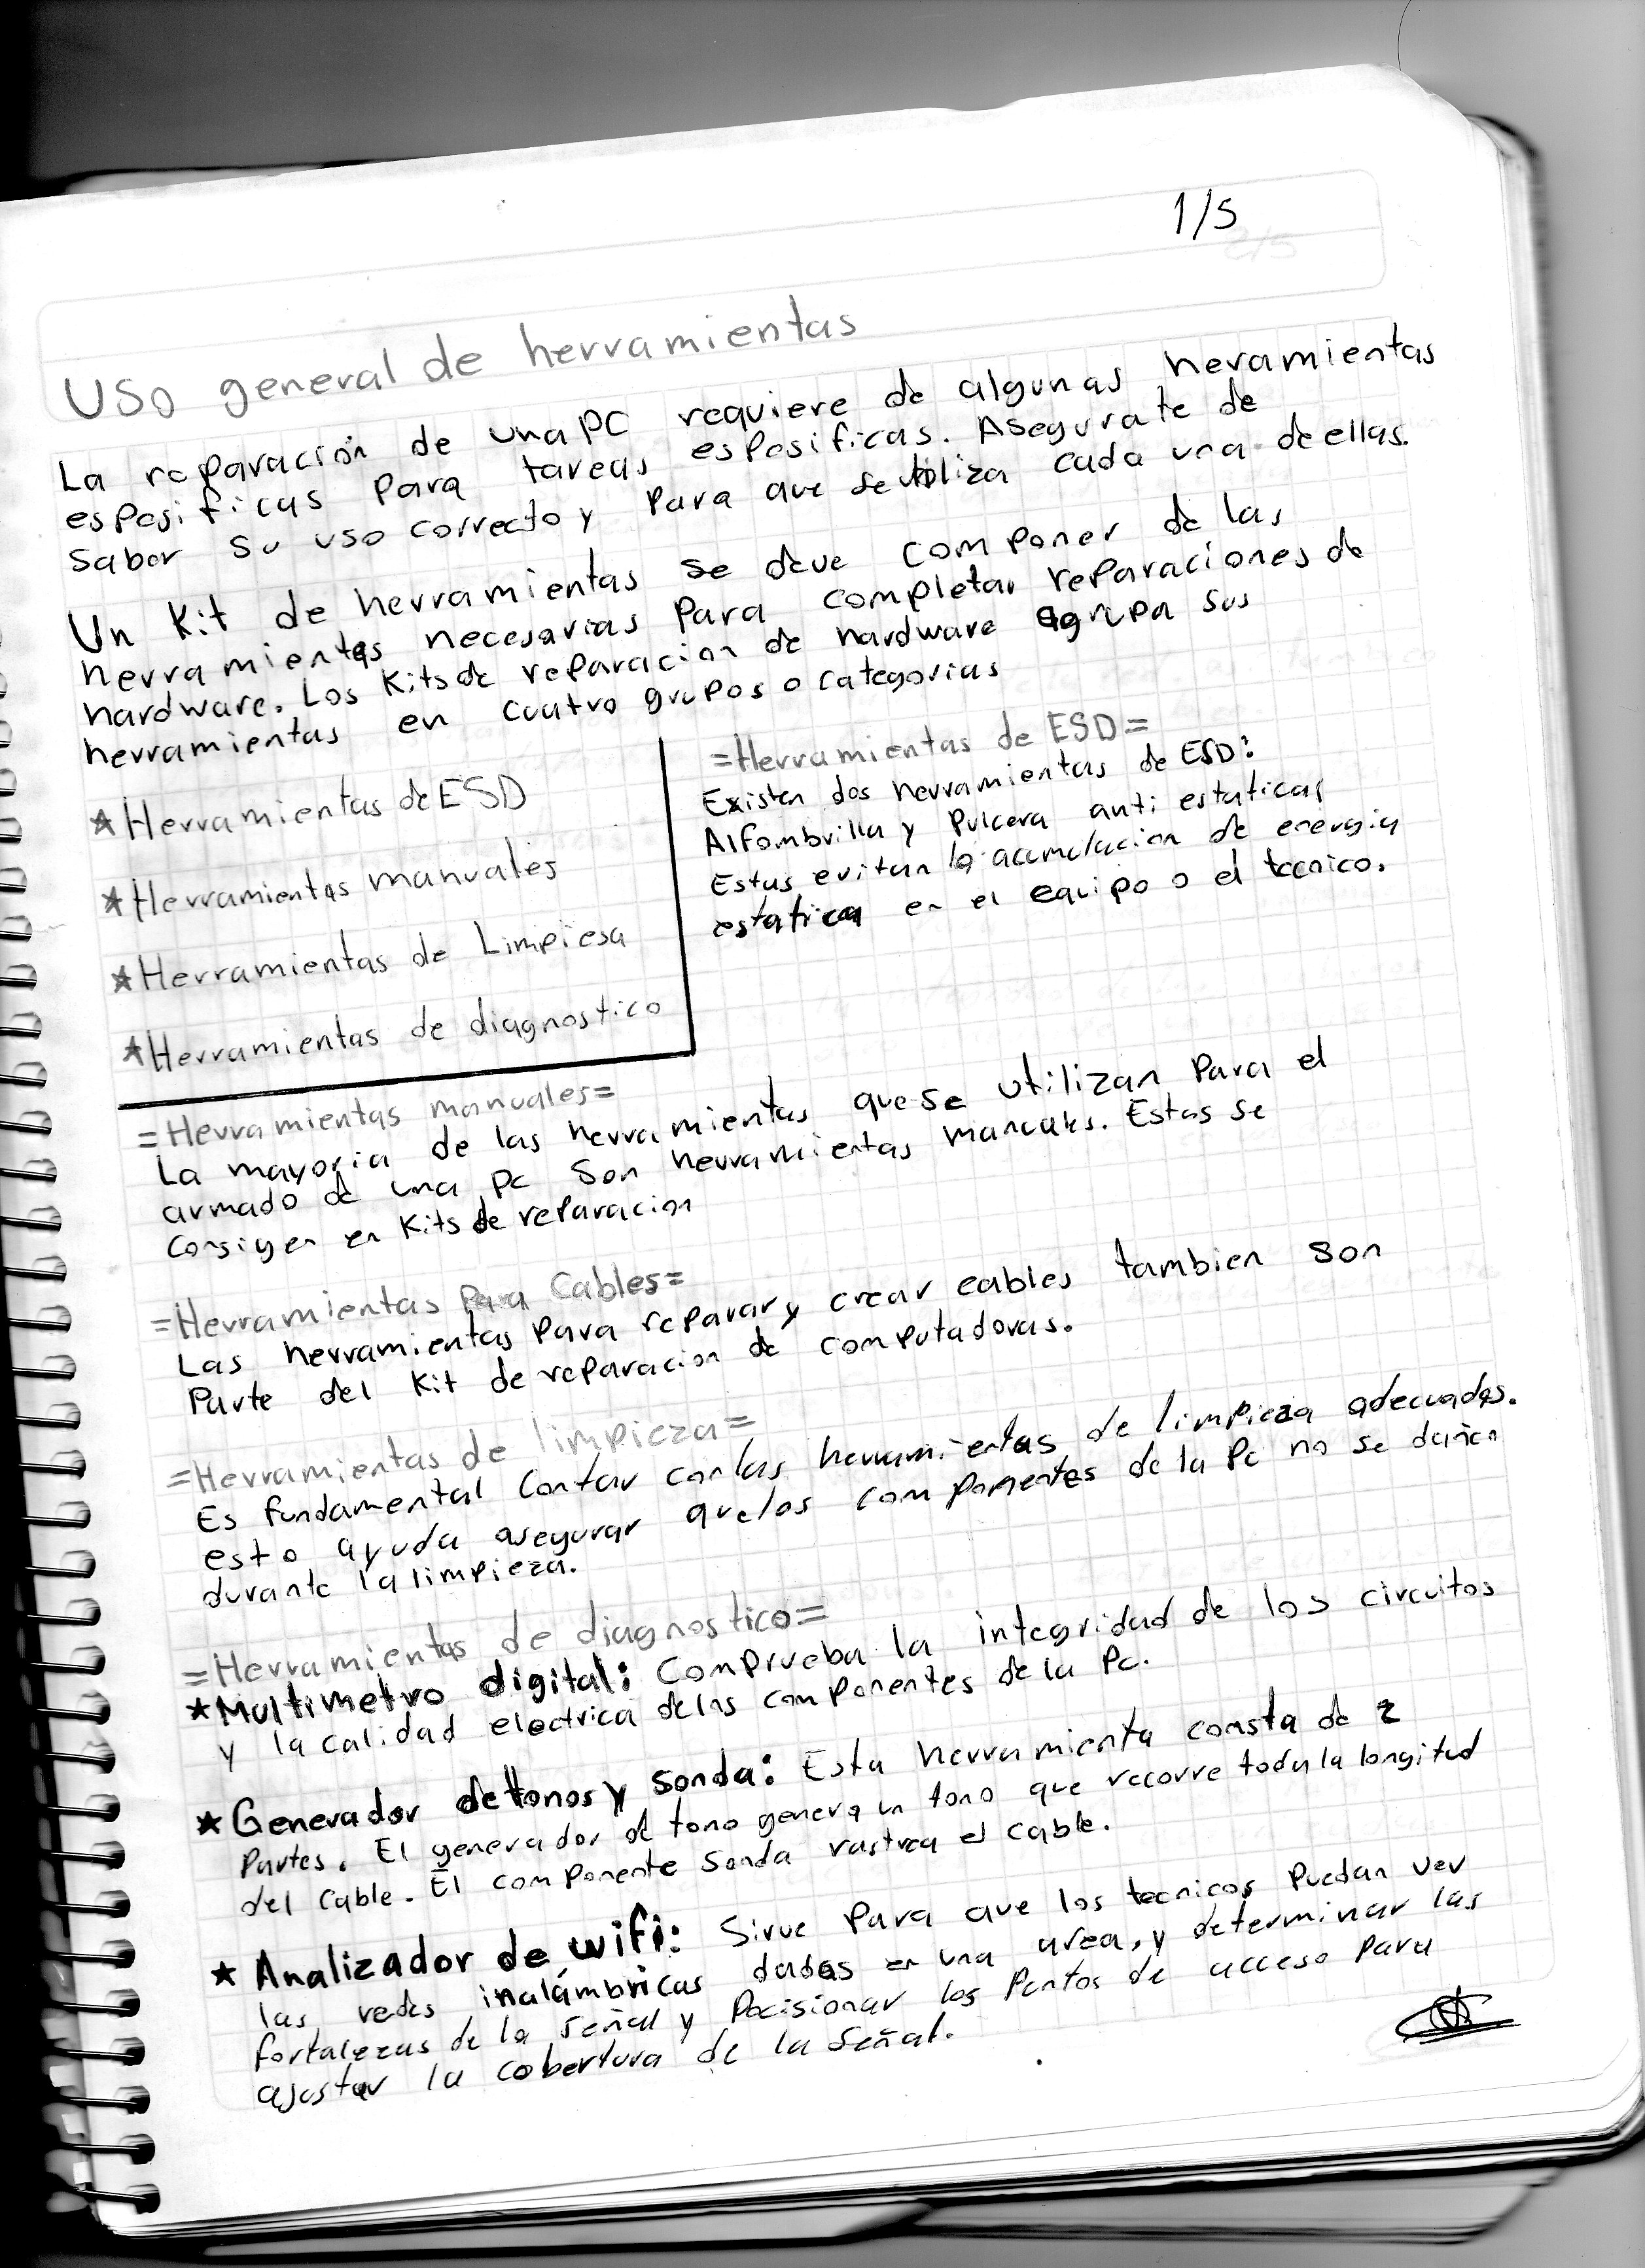 1/5
Uso general de herramientas
La reparación de una PC requiere de algunas heramientas
esposificas para tareas esposificas. Asegurate de
saber su uso correcto y para que se utiliza cada una de ellas.
Un Kit de herramientas se deve componer de las
herramientas necesarias para completar reparaciones de
hardware. Los Kits de reparacion de hardware agrupa sus
herramientas en cuatro grupos o categorias
★Herramientas de ESD
★Herramientas manuales
★Herramientas de Limpiesa
★Herramientas de diagnostico
=Herramientas de ESD=
Existen dos herramientas de ESD:
Alfombrilla y Pulcera anti estaticas
Estas evitan la acumulacion de energia
estatica en el equipo o el tecnico.
=Herramientas manuales=
La mayoria de las herramientas que se utilizan para el
armado de una pc son herramientas manuales. Estas se
consigen en Kits de reparacion
=Herramientas para Cables=
Las herramientas para reparar y crear cables tambien son
parte del Kit de reparacion de computadoras.
=Herramientas de limpieza=
Es fundamental contar con las herramientas de limpieza adecuadas.
esto ayuda asegurar que los componentes de la Pc no se dañen
durante la limpieza.
=Herramientas de diagnostico=
★Multimetro digital: Comprueba la integridad de los circuitos
y la calidad electrica de los componentes de la Pc.
★Generador de tonos y sonda: Esta herramienta consta de 2
partes. El generador de tono genera un tono que recorre toda la longitud
del cable. El componente sonda rastrea el cable.
★ Analizador de wifi: Sirve para que los tecnicos puedan ver
las redes inalámbricas dadas en una area, y determinar las
fortalezas de la señal y pocisionar los puntos de acceso para
ajustar la cobertura de la señal.